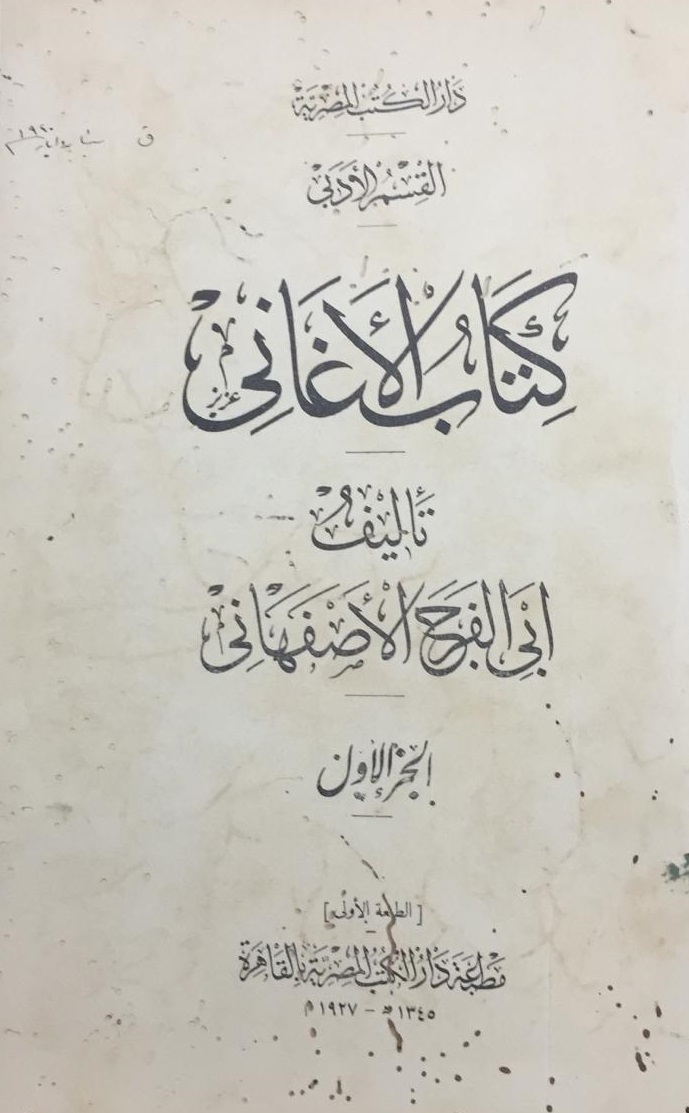 دار الكتب المصرية
القسم الأدبي
كِتَابُ الأَغَانِي
عزيز
تأليف
أبي الفرج الأصفهاني
الجزء الأول
[الطبعة الأولى]
مطبعة دار الكتب المصرية بالقاهرة
١٣٤٥ هـ - ١٩٢٧ م